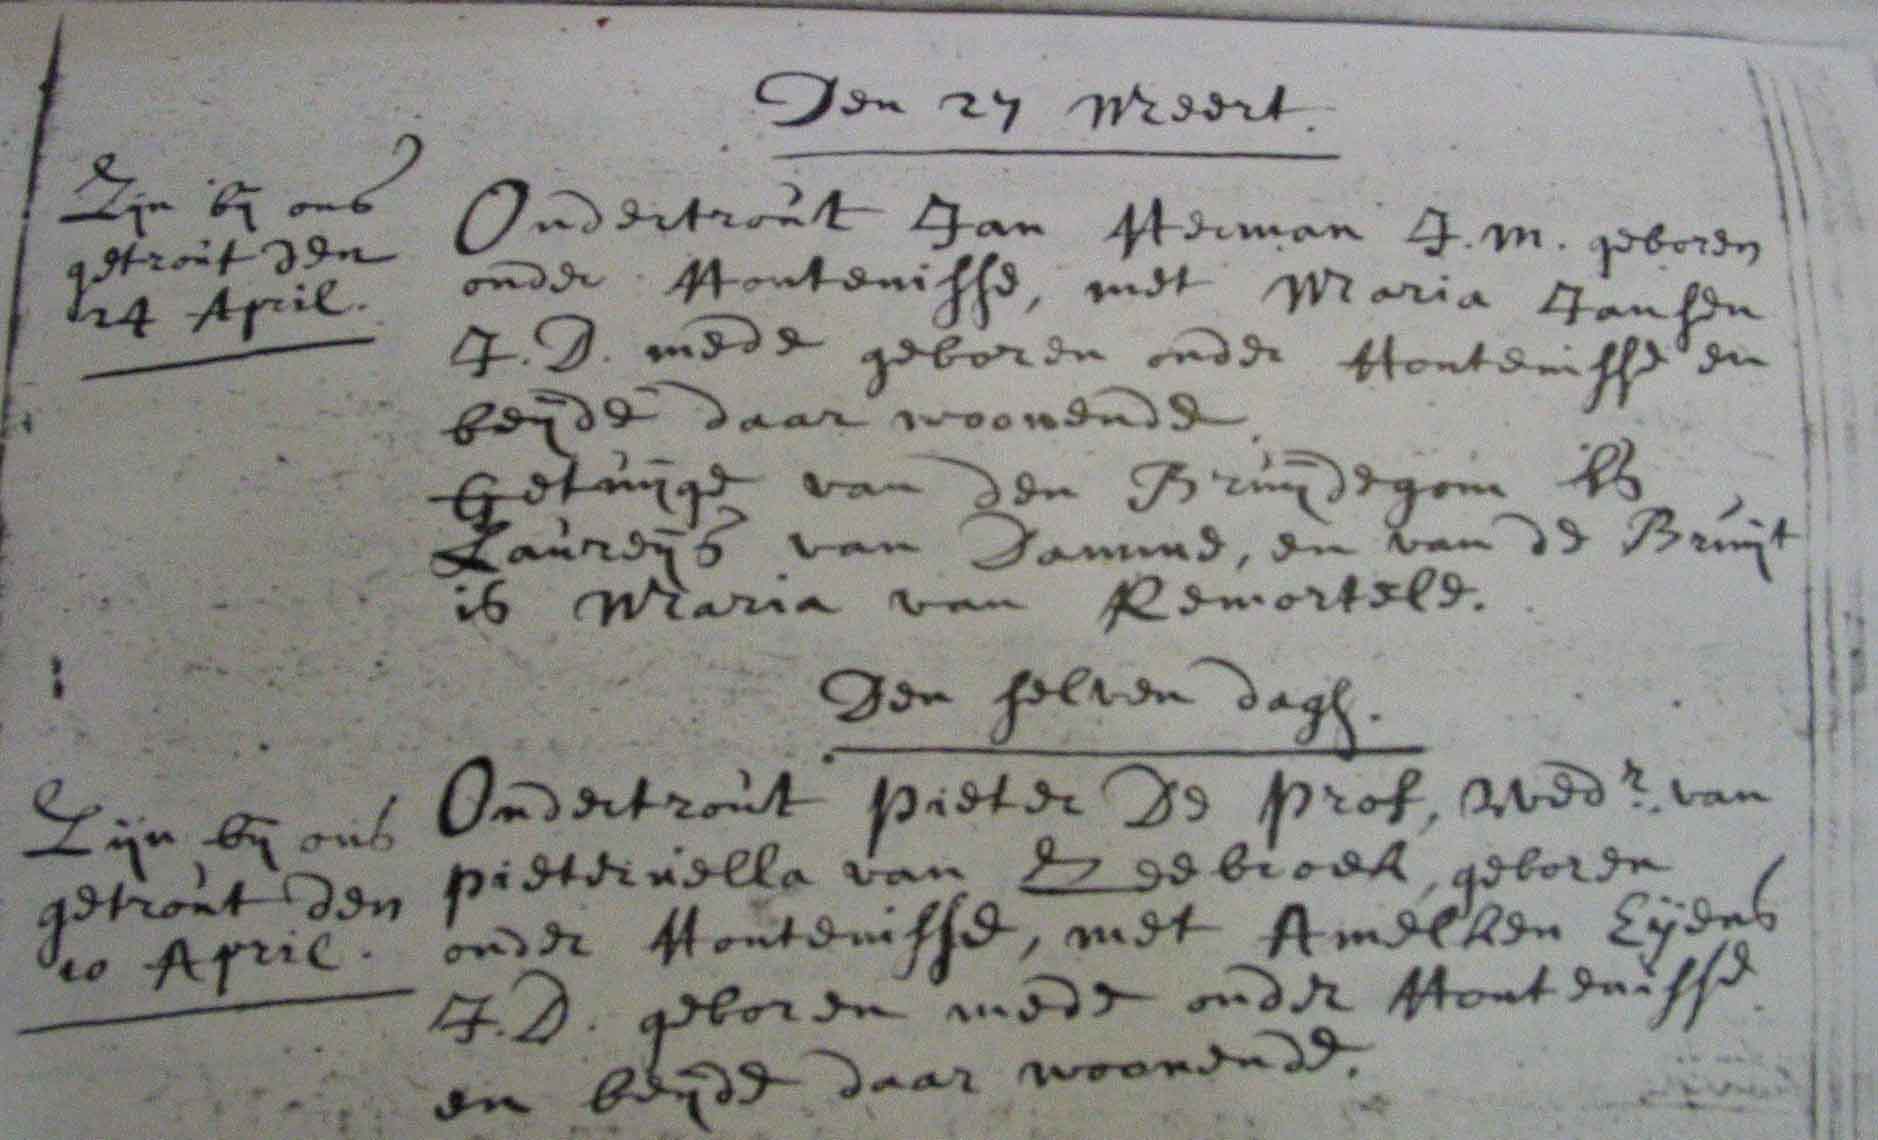 Den 27 Meert.
Zijn bij ons
getrout den
24 April.
Ondertrout Jan Herman J.M. geboren
onder Hontenisse, met Maria Jansen
J.D. mede geboren onder Hontenisse en
beijde daar woonende.
Getuijge van den Bruijdegom is
Laureijs van Damme, en van de Bruijt
is Maria van Remortele.
Den selven dagh.
Zijn bij ons
getrout den
10 April.
Ondertrout Pieter De Prof, Wedr. van
Pieternella van Eedebroek, geboren
onder Hontenisse, met Amelken Eijens
J.D. geboren mede onder Hontenisse
en beijde daar woonende.